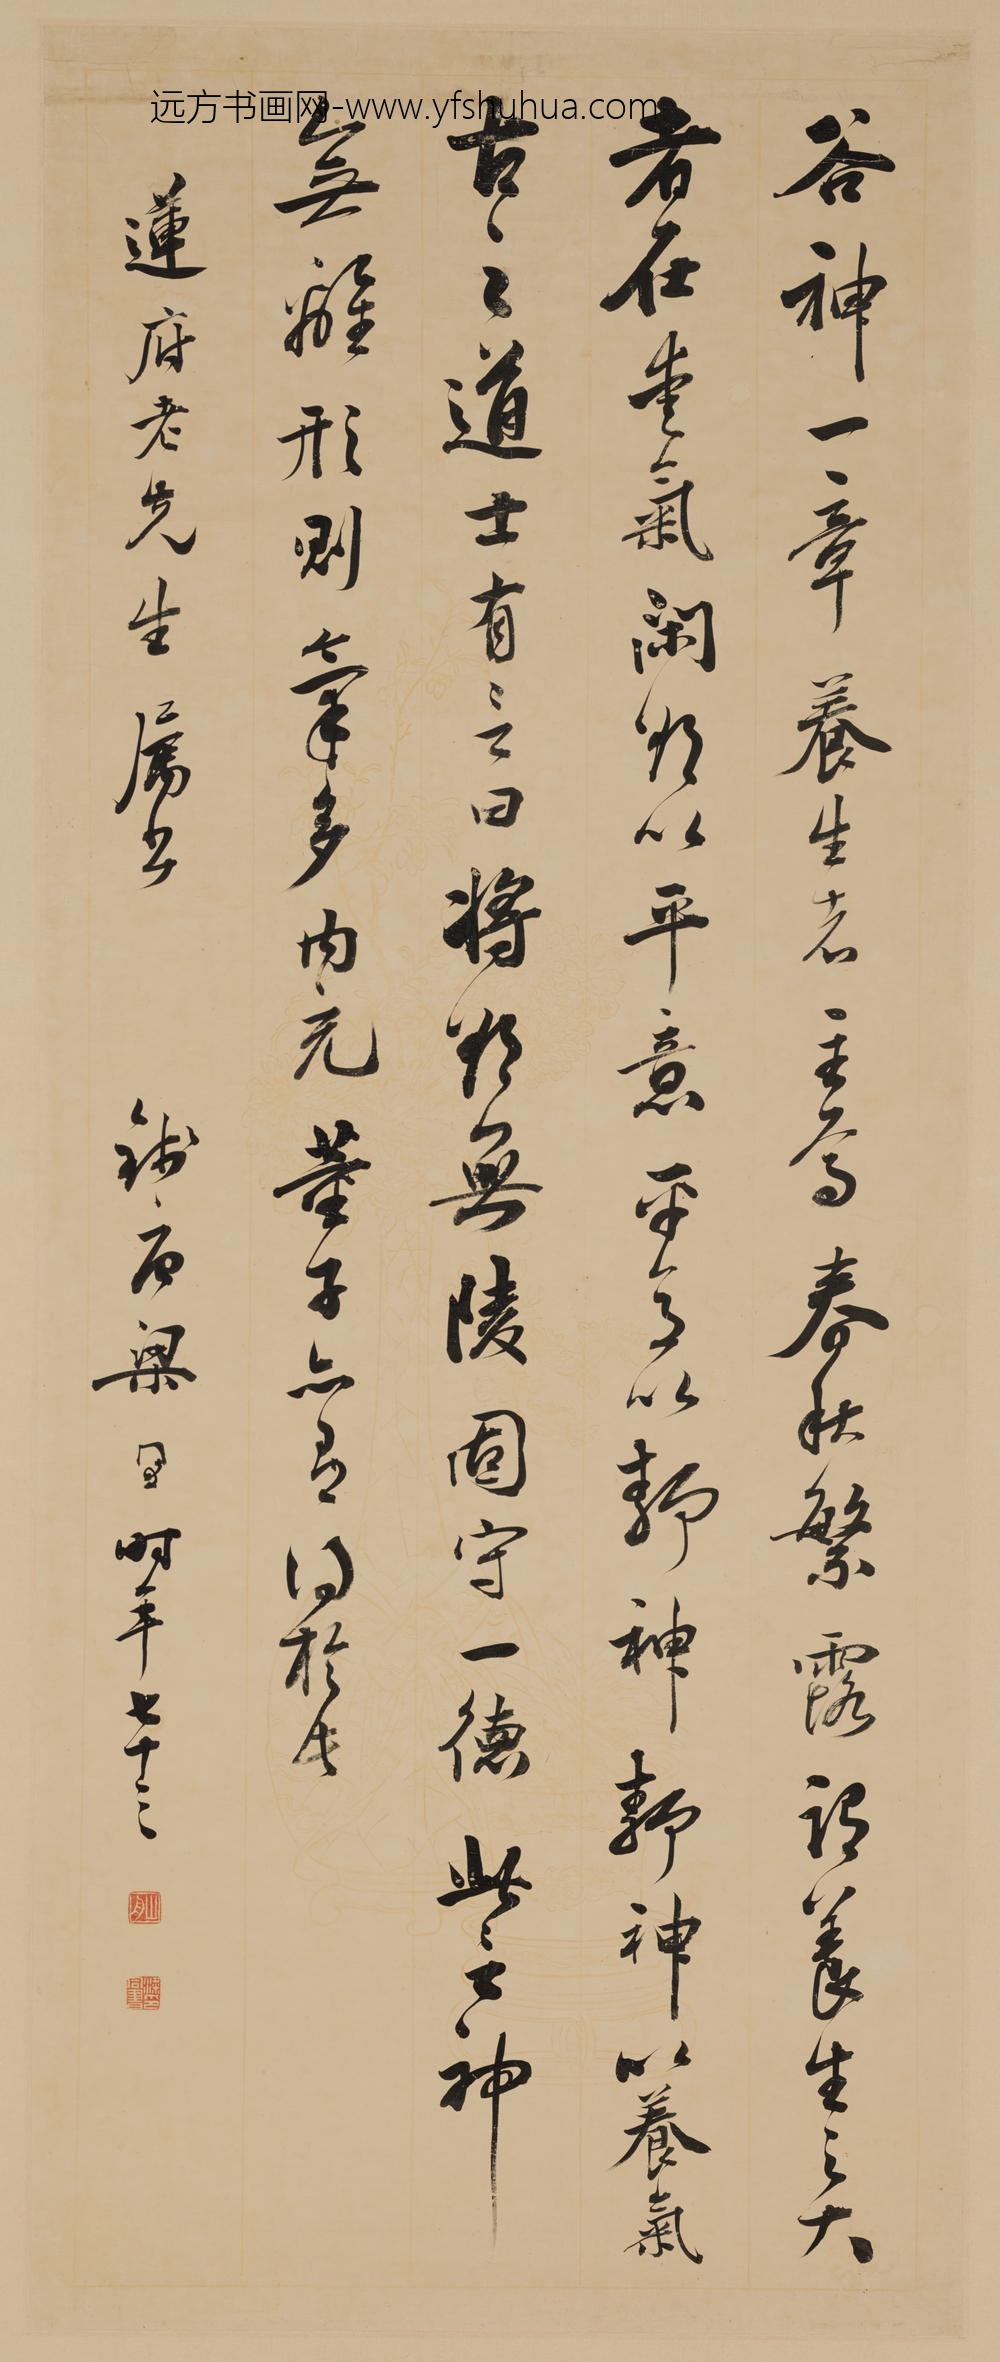 远方书画网-www.yfshuhua.com
谷神一章養生者主焉春秋繁露謂養生之大
者在愛氣閑欲以平意平意以靜神靜神以養氣
古之道士有言曰將欲無陵固守一德此言神
無離形則氣多內充董子亦有得於
蓮府老先生屬書 錢唐梁同書時年七十三
山舟